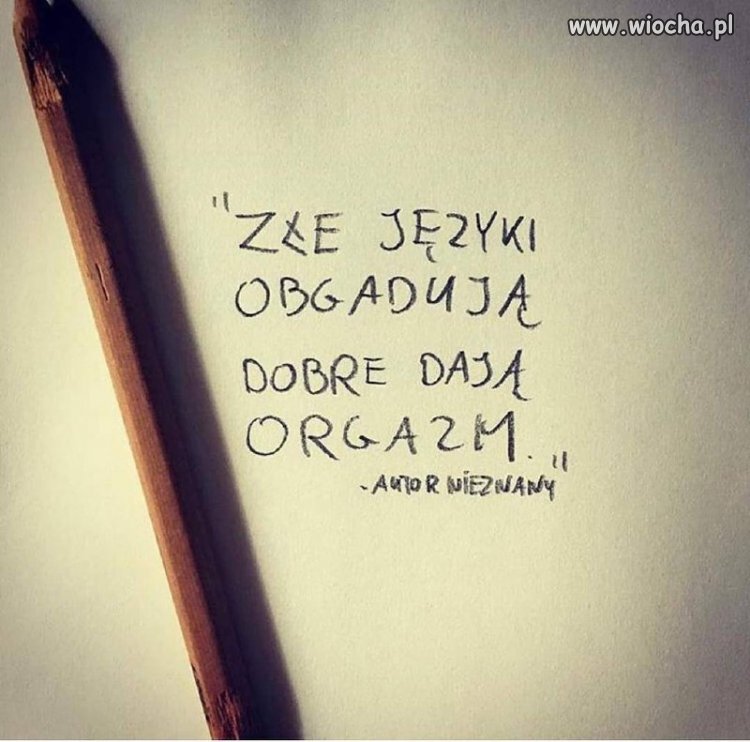 www.wiocha.pl
"ZŁE JĘZYKI
OBGADUJĄ
DOBRE DAJĄ
ORGAZM."
- AUTOR NIEZNANY